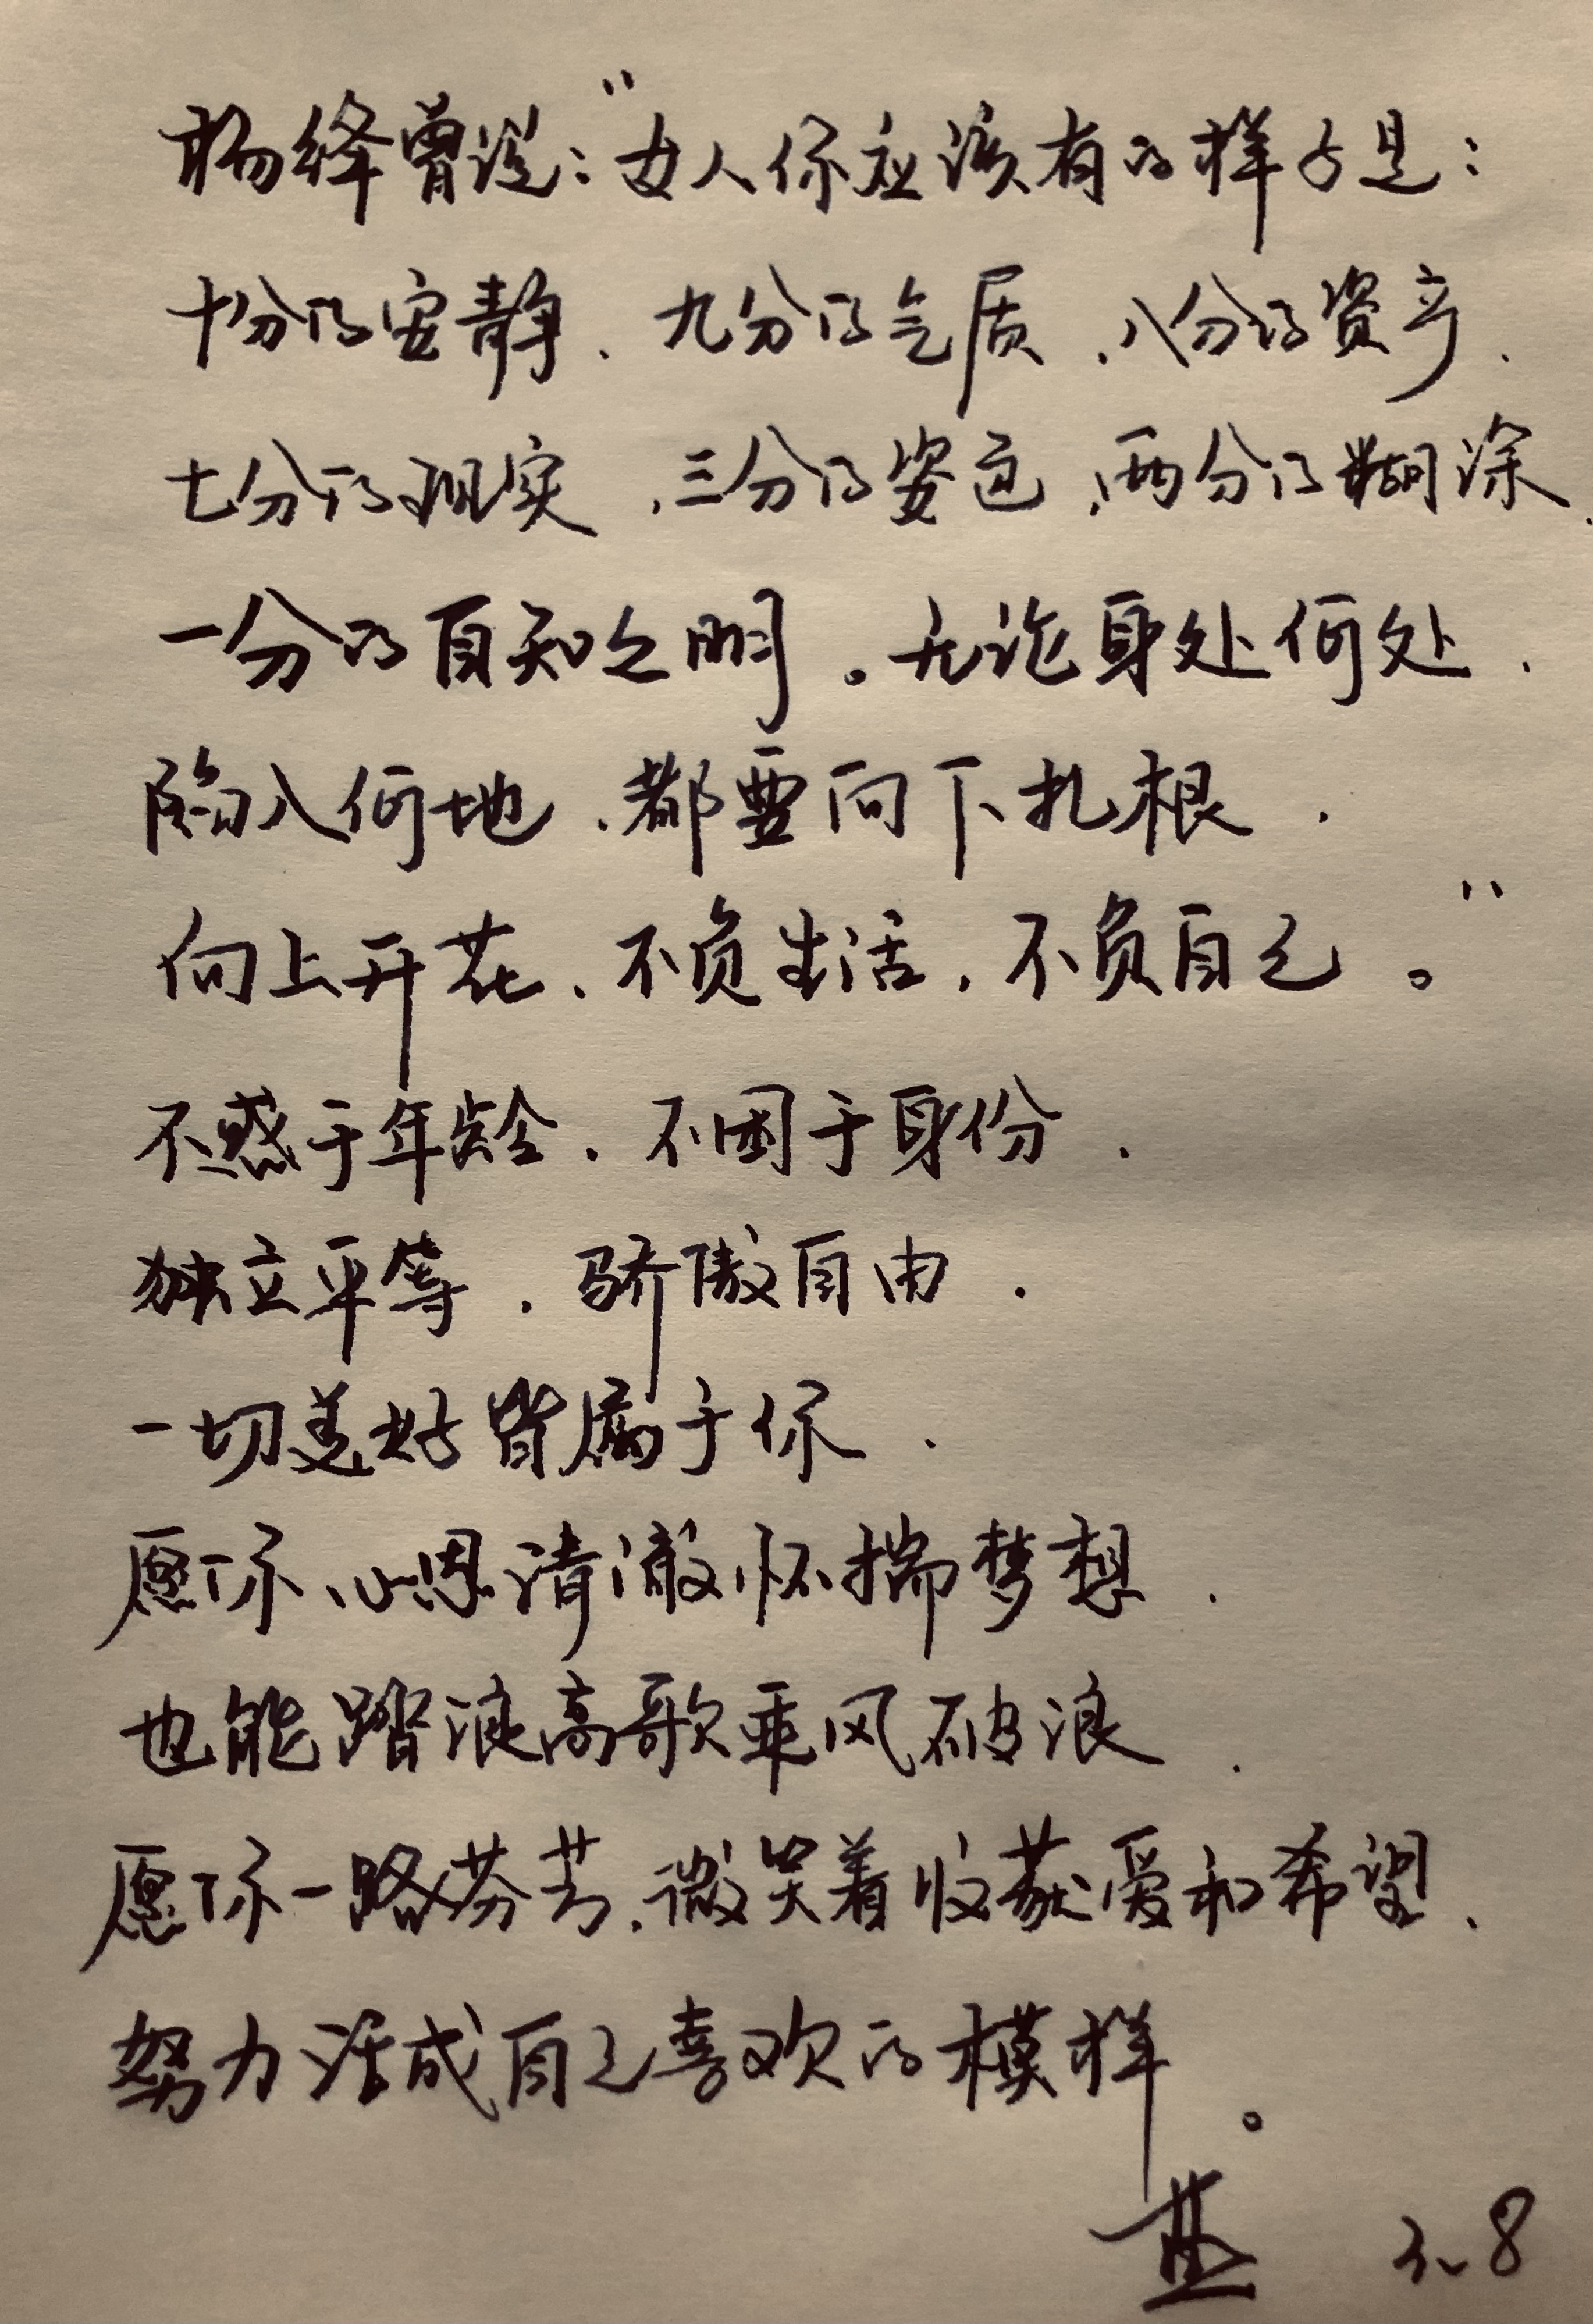 杨绛曾说：“女人你应该有的样子是：
十分的安静、九分的气质、八分的资产、
七分的现实、三分的姿色、两分的糊涂、
一分的自知之明。无论身处何处、
陷入何地、都要向下扎根、
向上开花、不负生活，不负自己。”
不惑于年龄、不困于身份、
独立平等、骄傲自由、
一切美好皆属于你、
愿你心思清澈怀揣梦想、
也能踏浪高歌乘风破浪、
愿你一路芬芳、微笑着收获爱和希望、
努力活成自己喜欢的模样。
3.8